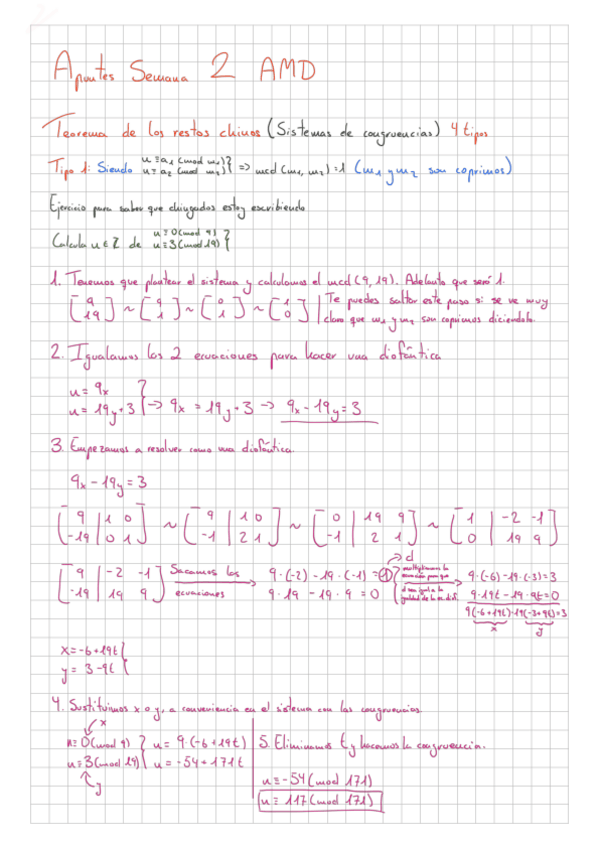 Apuntes Semana 2 AMD
Teorema de los restos chinos (Sistemas de congruencias) 4 tipos
Tipo 1: Siendo u ≡ a₁ (mod m₁) u ≡ a₂ (mod m₂) } => mcd (m₁, m₂) = 1 (m₁ y m₂ son coprimos)
Ejercicio para saber que chingados estoy escribiendo
Calcula u ∈ Z de u ≡ 0 (mod 9) u ≡ 3 (mod 19) }
1. Tenemos que plantear el sistema y calculamos el mcd (9, 19). Adelanto que será 1.
[9 19] ~ [9 1] ~ [0 1] ~ [1 0] | Te puedes saltar este paso si se ve muy
claro que m₁ y m₂ son coprimos diciendolo.
2. Igualamos las 2 ecuaciones para hacer una diofántica
u = 9x
u = 19y + 3 } -> 9x = 19y + 3 -> 9x - 19y = 3
3. Empezamos a resolver como una diofántica.
9x - 19y = 3
[9 | 1 0] ~ [9 | 1 0] ~ [0 | 19 9] ~ [1 | -2 -1]
[-19 | 0 1] [-1 | 2 1] [-1 | 2 1] [0 | 19 9]
-> d
[9 | -2 -1] Sacamos las 9·(-2) - 19·(-1) = 1 multiplicamos la ecuación para que 9·(-6) - 19·(-3) = 3
[-19 | 19 9] ecuaciones 9·19 - 19·9 = 0 d sea igual a la igualdad de la ec. dif. 9·19t - 19·9t = 0
9(-6+19t)-19(-3+9t)=3
x y
x = -6 + 19t
y = 3 - 9t }
4. Sustituimos x o y, a conveniencia en el sistema con las congruencias.
x
u ≡ 0 (mod 9) } u = 9·(-6 + 19t)
u ≡ 3 (mod 19) } u = -54 + 171t
y
5. Eliminamos t y hacemos la congruencia.
u ≡ -54 (mod 171)
u ≡ 117 (mod 171)